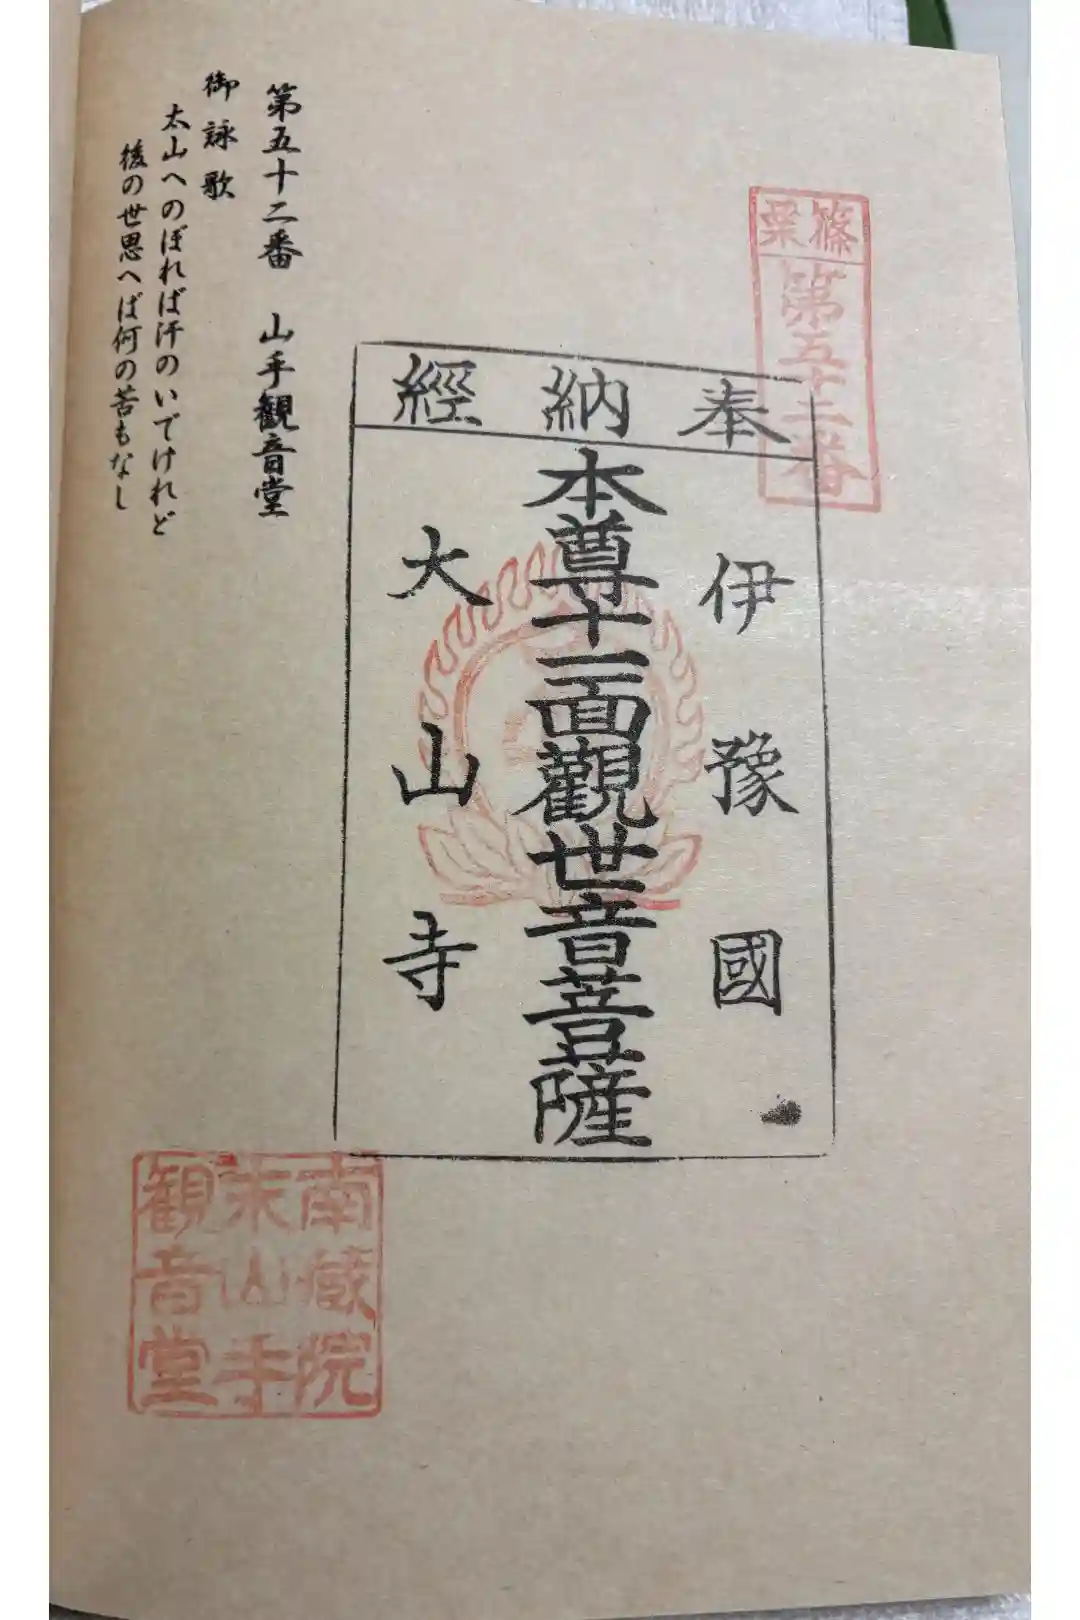 篠栗
第五十二番
奉納經
伊豫國
本尊十一面觀世音菩薩
大山寺
第五十二番 山手観音堂
御詠歌
太山へのぼれば汗のいでけれど
後の世思へば何の苦もなし
南蔵院
末山手
観音堂